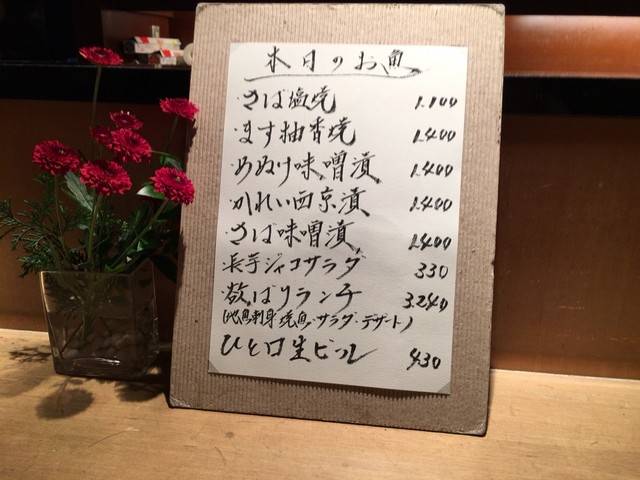 本日のお魚
・さば塩焼 1.100
・ます柚香焼 1.400
・めぬけ味噌漬 1.400
・かれい西京漬 1.400
・さば味噌漬 1.400
長芋ジャコサラダ 330
欲ばりランチ 3.240
(地魚刺身・焼魚・サラダ・デザート)
ひと口生ビール 430